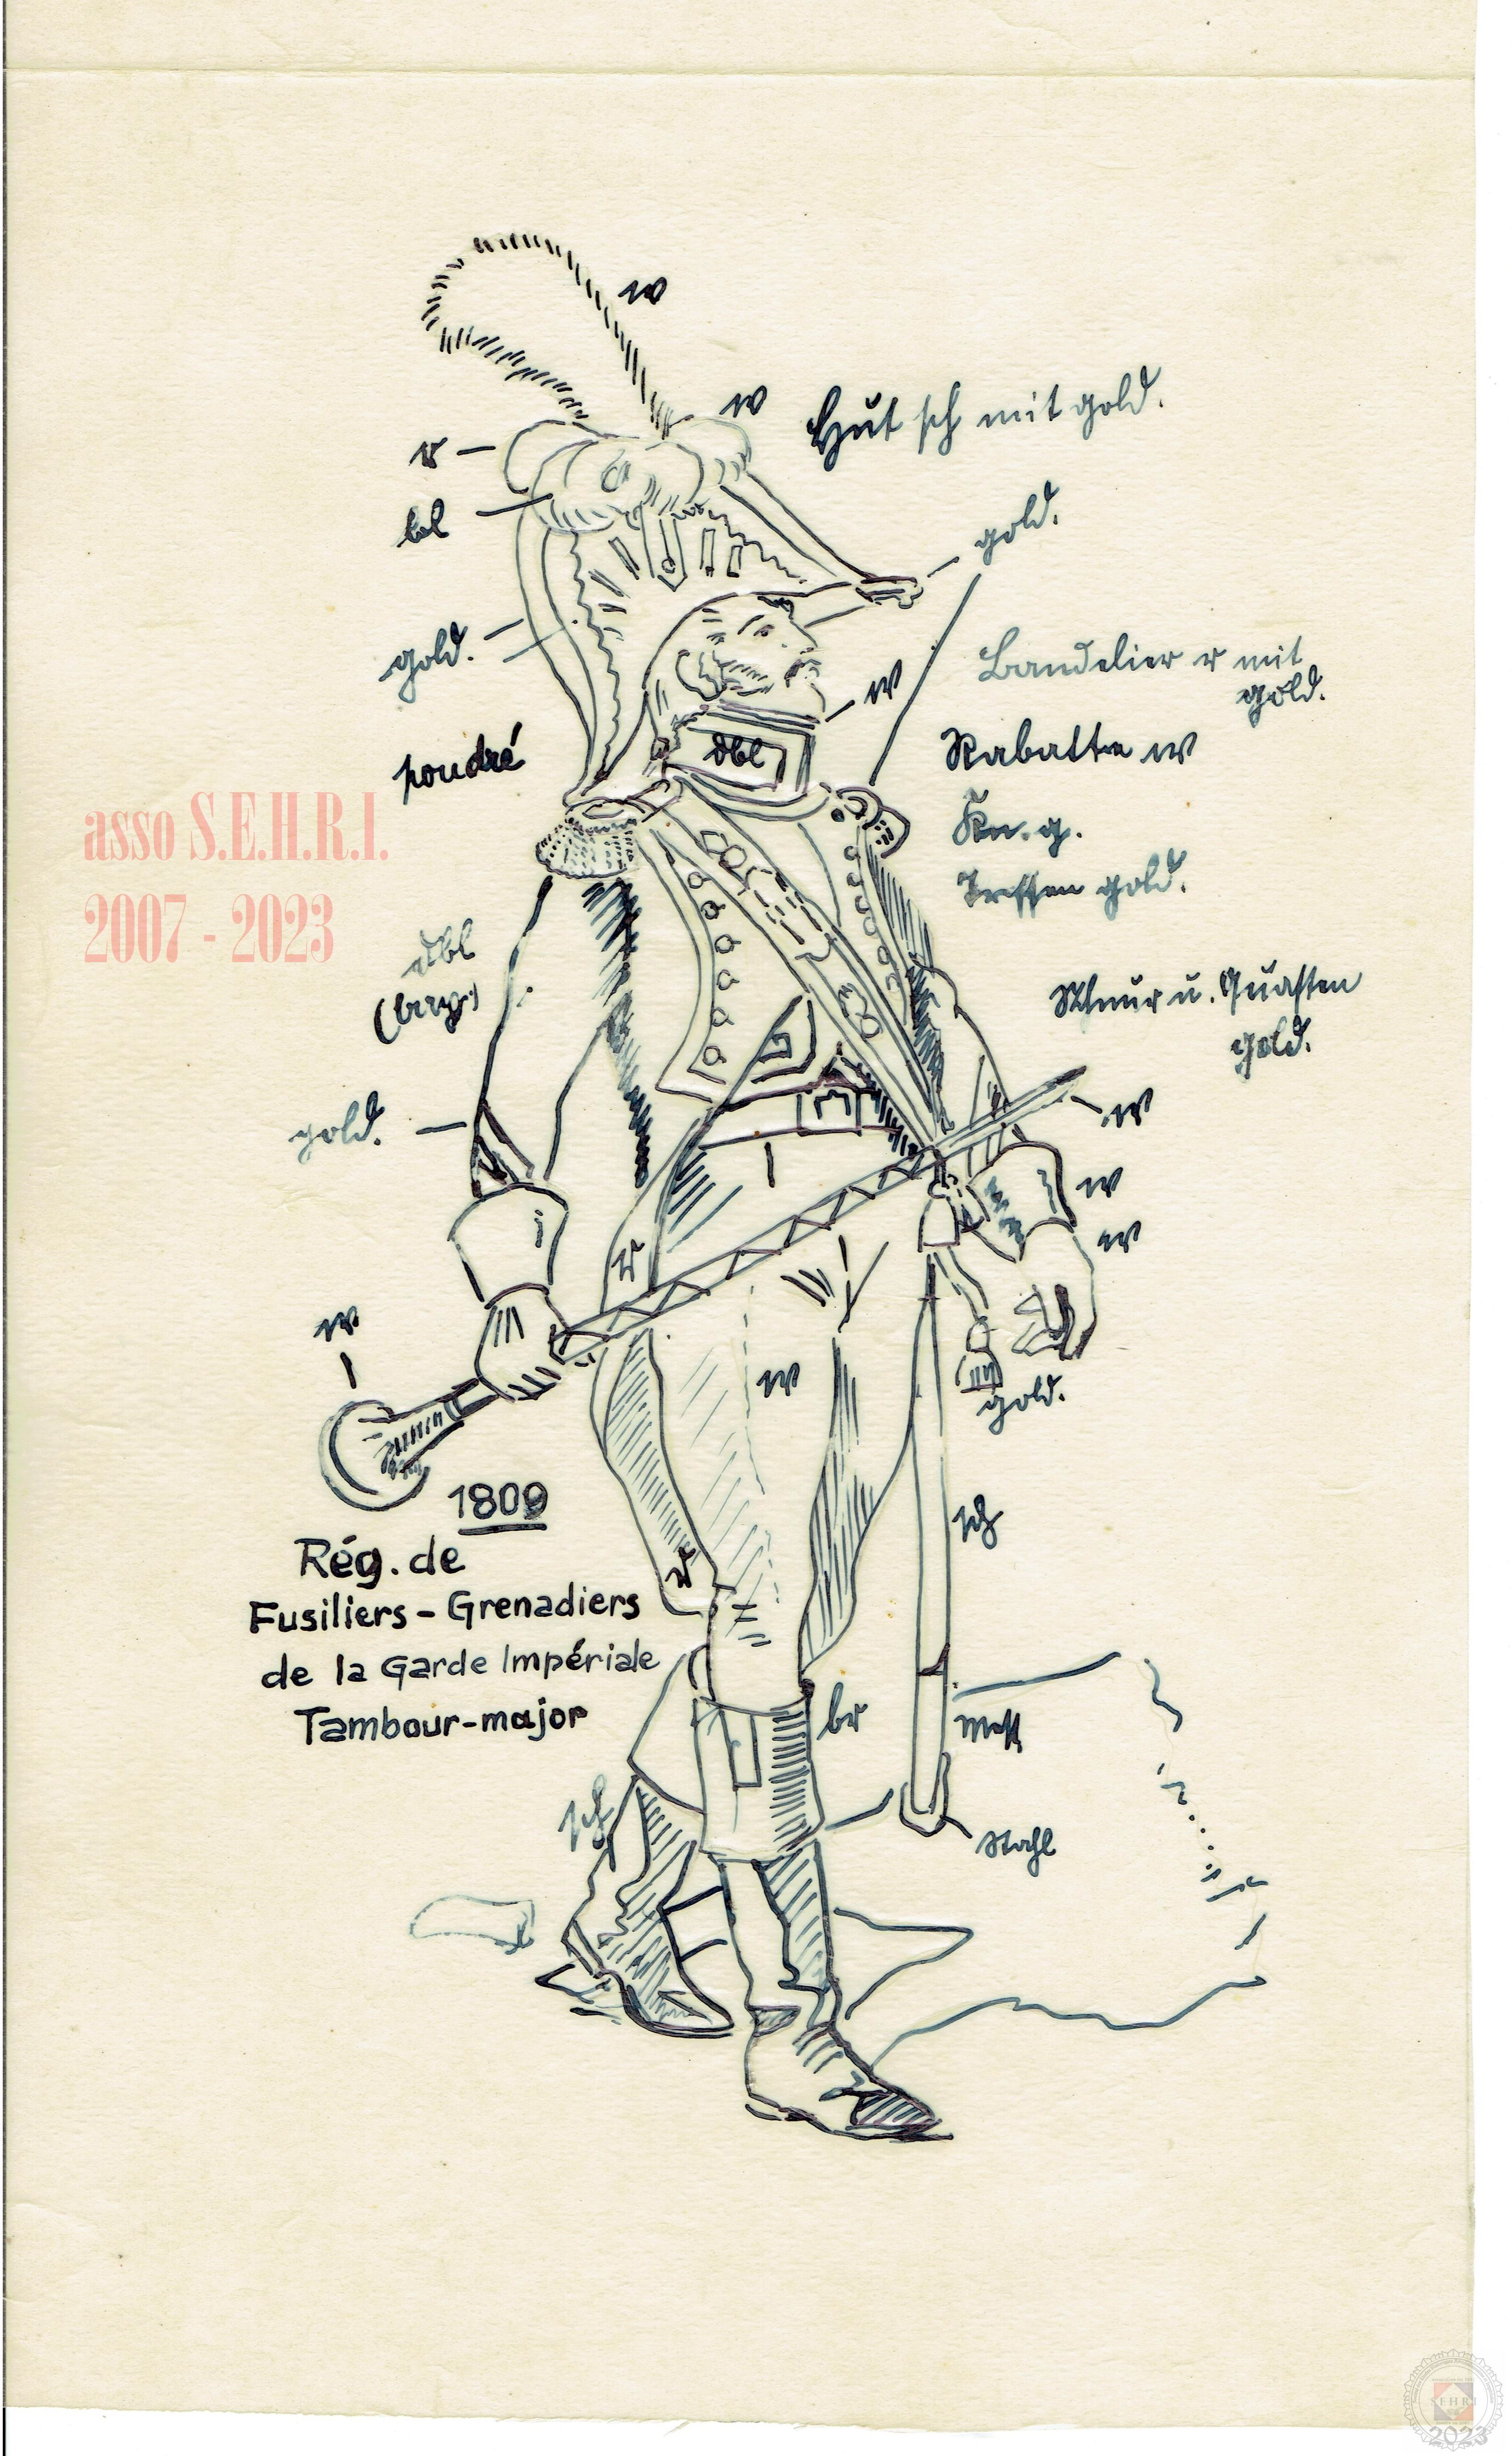 w
w
Hut sch mit gold.
r
bl
gold.
gold.
Bandelier r mit
gold.
w
dbl
poudré
Rabatten w
Kn. g.
Tressen gold.
asso S.E.H.R.I.
2007 - 2023
dbl
Schnur u. Quasten
gold.
gold.
w
w
w
r
w
w
gold.
1809
sch
Rég. de
Fusiliers - Grenadiers
r
de la Garde Impériale
Tambour-major
br
Mess
sch
Stahl
SEHRI
2023